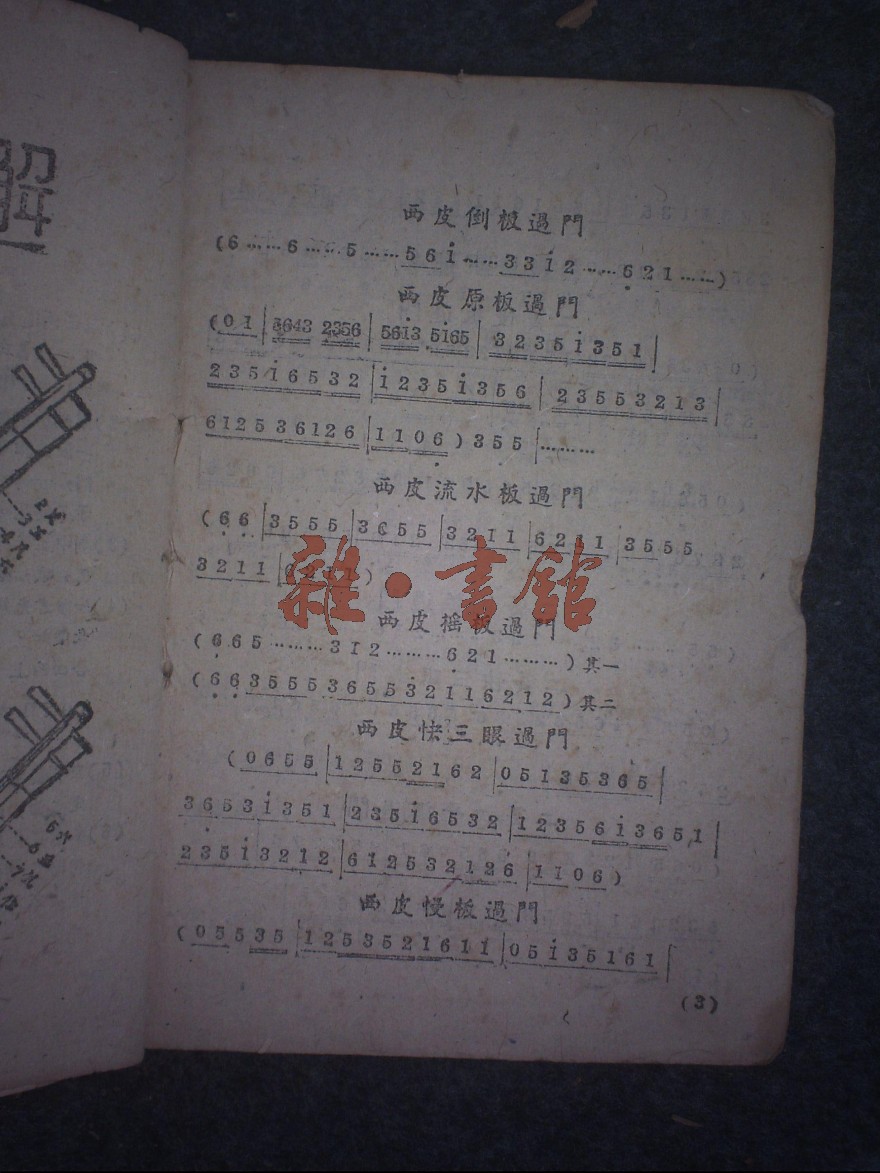 解
西皮倒板過門
(6……6……5……56i……33i2……621……)
西皮原板過門
(01|3643 2356|56i3 5i65|3235i351|
235i6532|i235i356|23553213|
612536126|1106)355|………
西皮流水板過門
(66|3555|3655|3211|6211|3555
3211|6211)
雜·書館
西皮摇板過門
(665………312………621………)其一
(663555365532116212)其二
西皮快三眼過門
(0655|12552162|05135365|
3653i351|235i6532|12356i3651
235i3212|612532126|1106)
西皮慢板過門
(05535|125352161i|05i35161|
(3)